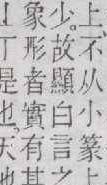 上不从小篆上
少故顯白言之
象形者實有
丁是也天